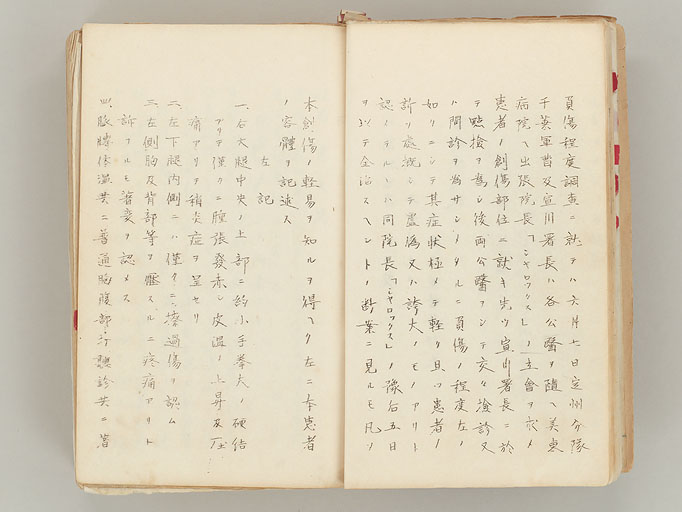 負傷程度調査ニ就テハ六月七日定州分隊
千葉軍曹及宣川署長ハ各公醫ヲ随ヘ美東
病院ヘ出張院長「シャロックス」ノ立會ヲ求メ
患者ノ創傷部位ニ就キ先ツ宣川署長ニ於
テ臨検ヲ為シ後両公醫ヲシテ交々検診又
ハ問診ヲ為サシメタルニ負傷ノ程度左ノ
如クニシテ其症状極メテ軽ク且ツ患者ノ
訴フル處概シテ虚偽又ハ誇大ノモノアリト
認メラルヽハ同院長「シャロックス」ノ豫后五日
ヲ以テ全治スヘシトノ断案ニ見ルモ凡ソ
本創傷ノ軽易ヲ知ルヲ得ヘク左ニ本患者
ノ容體ヲ記述ス
左記
一、右大腿中央ノ上部ニ約小手拳大ノ硬結
アリテ僅クニ腫張發赤シ皮温ノ上昇及圧
痛アリテ稍炎症ヲ呈セリ
二、左下腿内側ニハ僅クニ擦過傷ヲ認ム
三、左側胸及背部等ヲ壓スルニ疼痛アリト
訴フルモ著変ヲ認メス
四、脈膊体温共ニ普通胸腹部ノ打聴診共ニ著